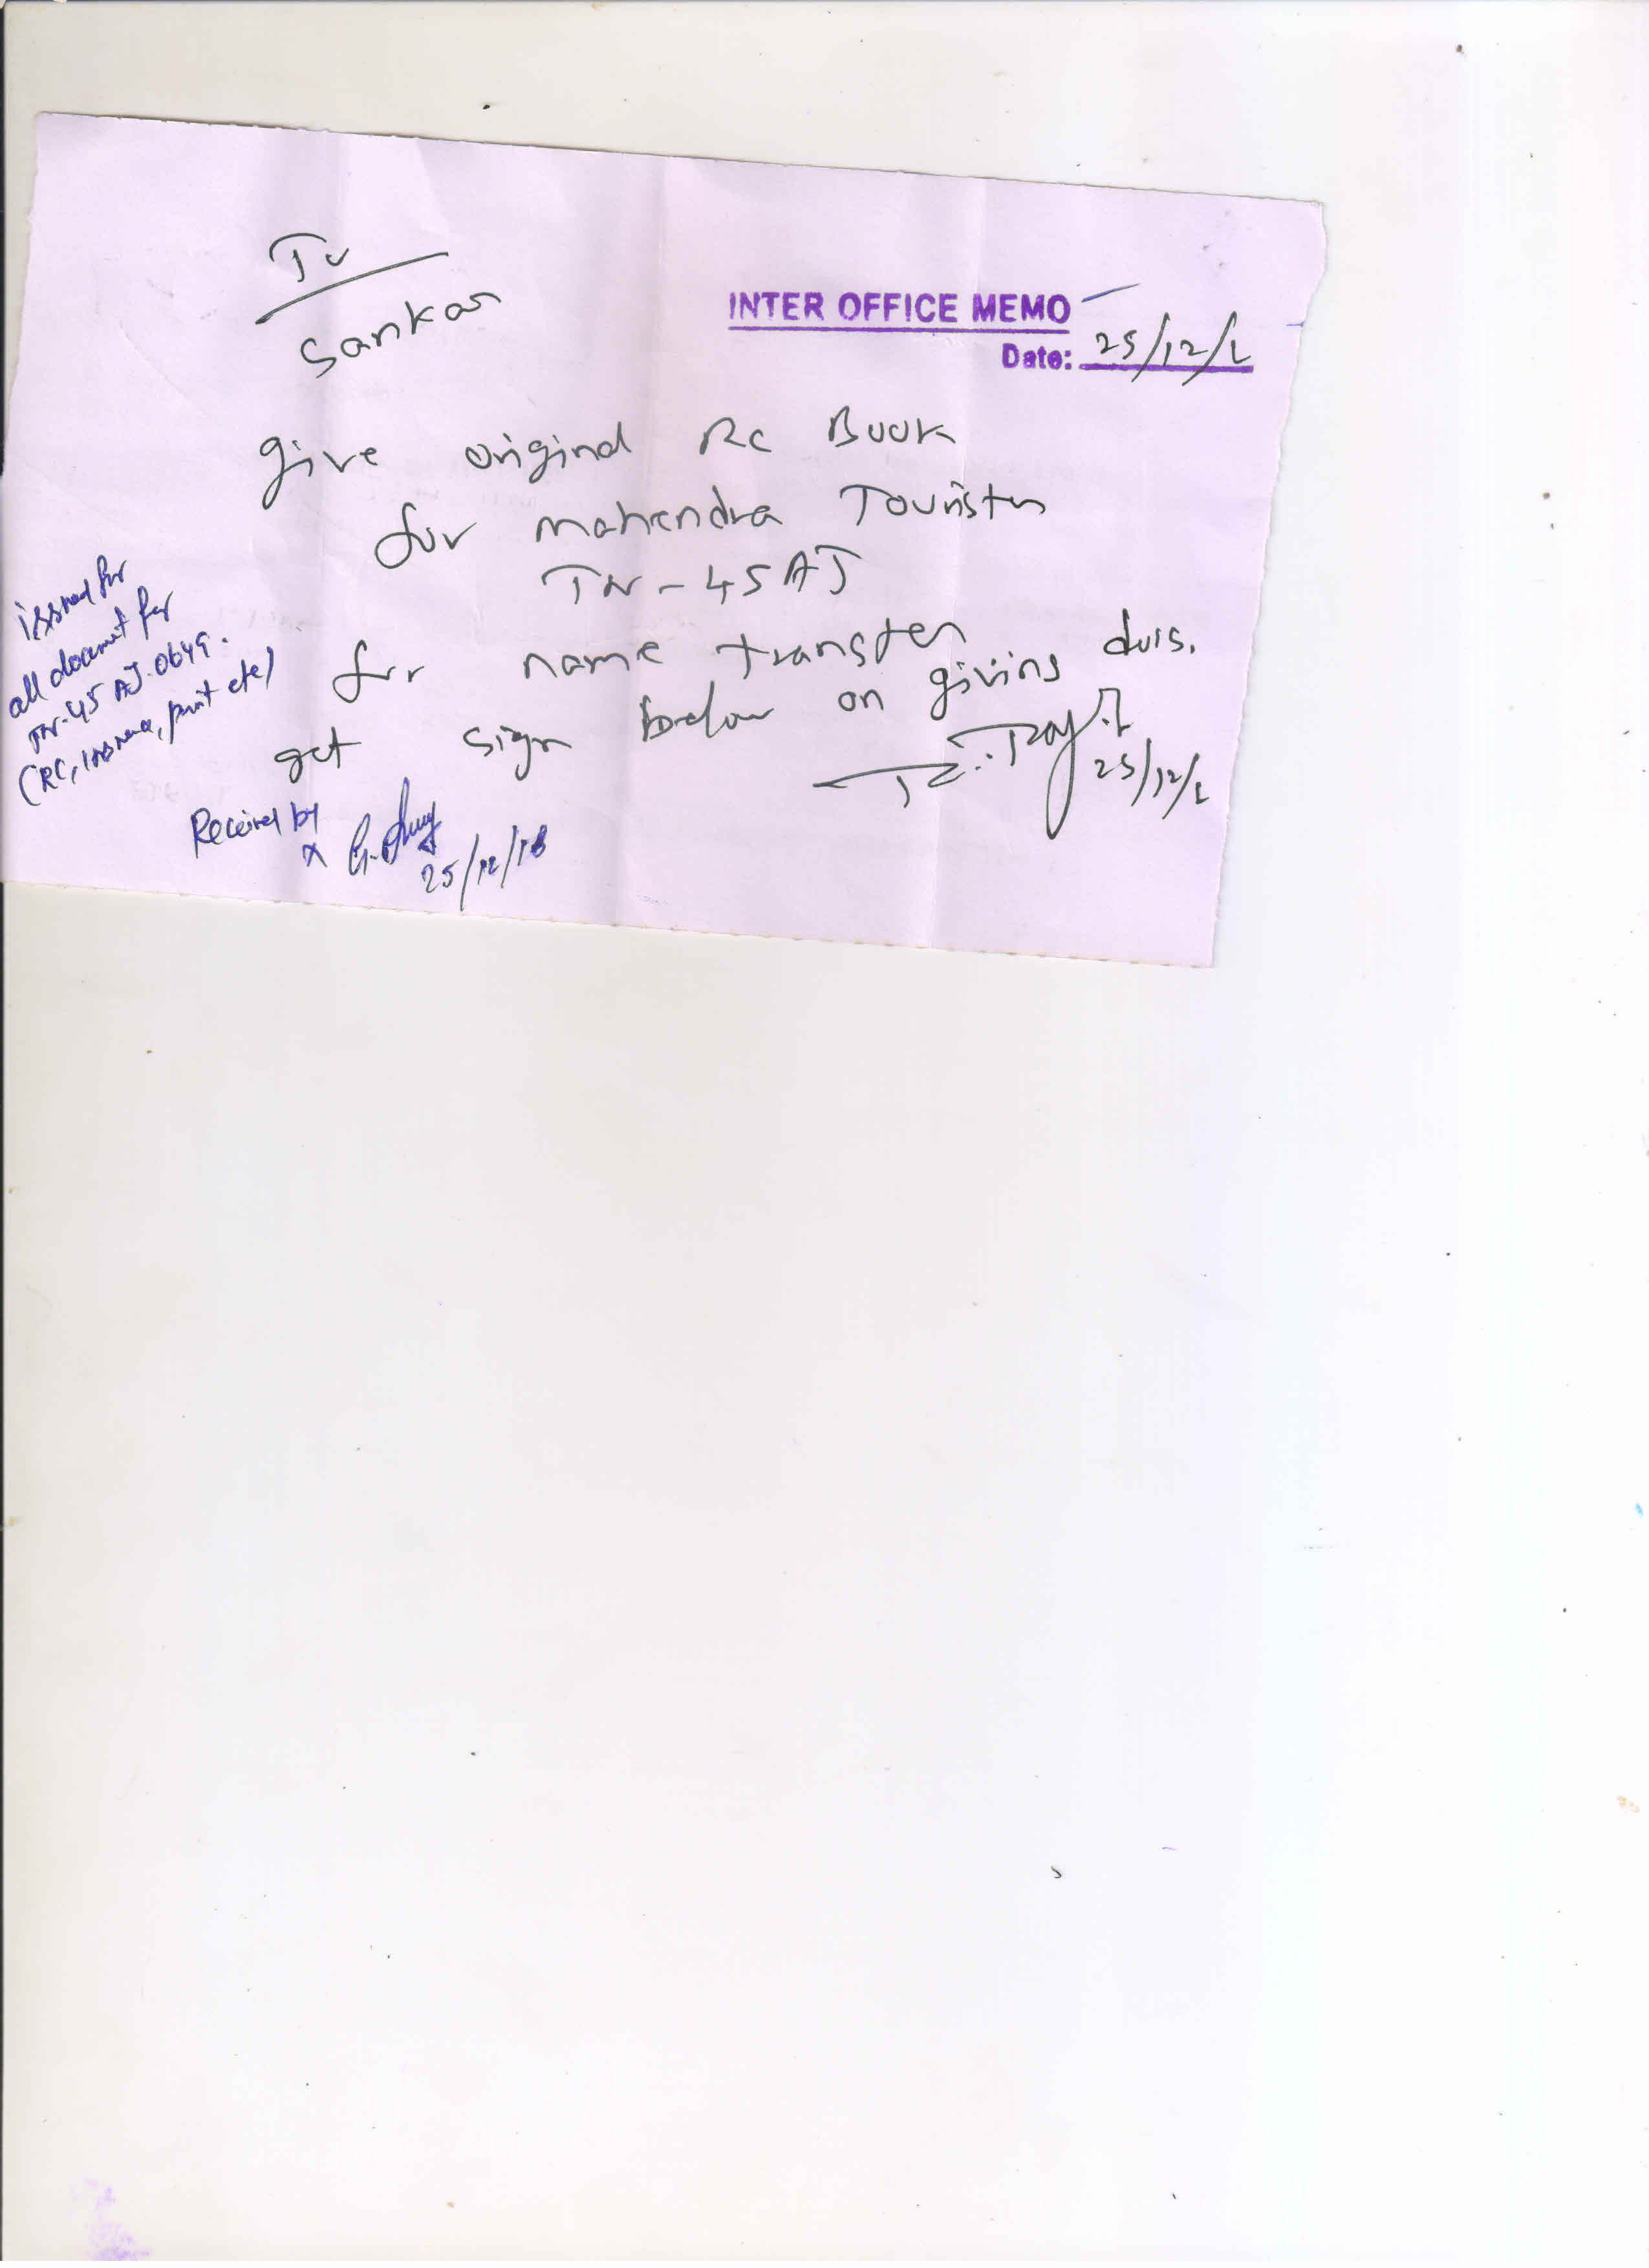 To
Sankar
INTER OFFICE MEMO
Date: 25/12/1
give original Rc Book
for mahendra Tourister
TN-45AJ
for name transfer
get sign below on giving docs.
25/12/1
issued for
all document for
TN-45 AJ-0649.
(RC, Insurance, permit etc)
Received by
x
25/12/18